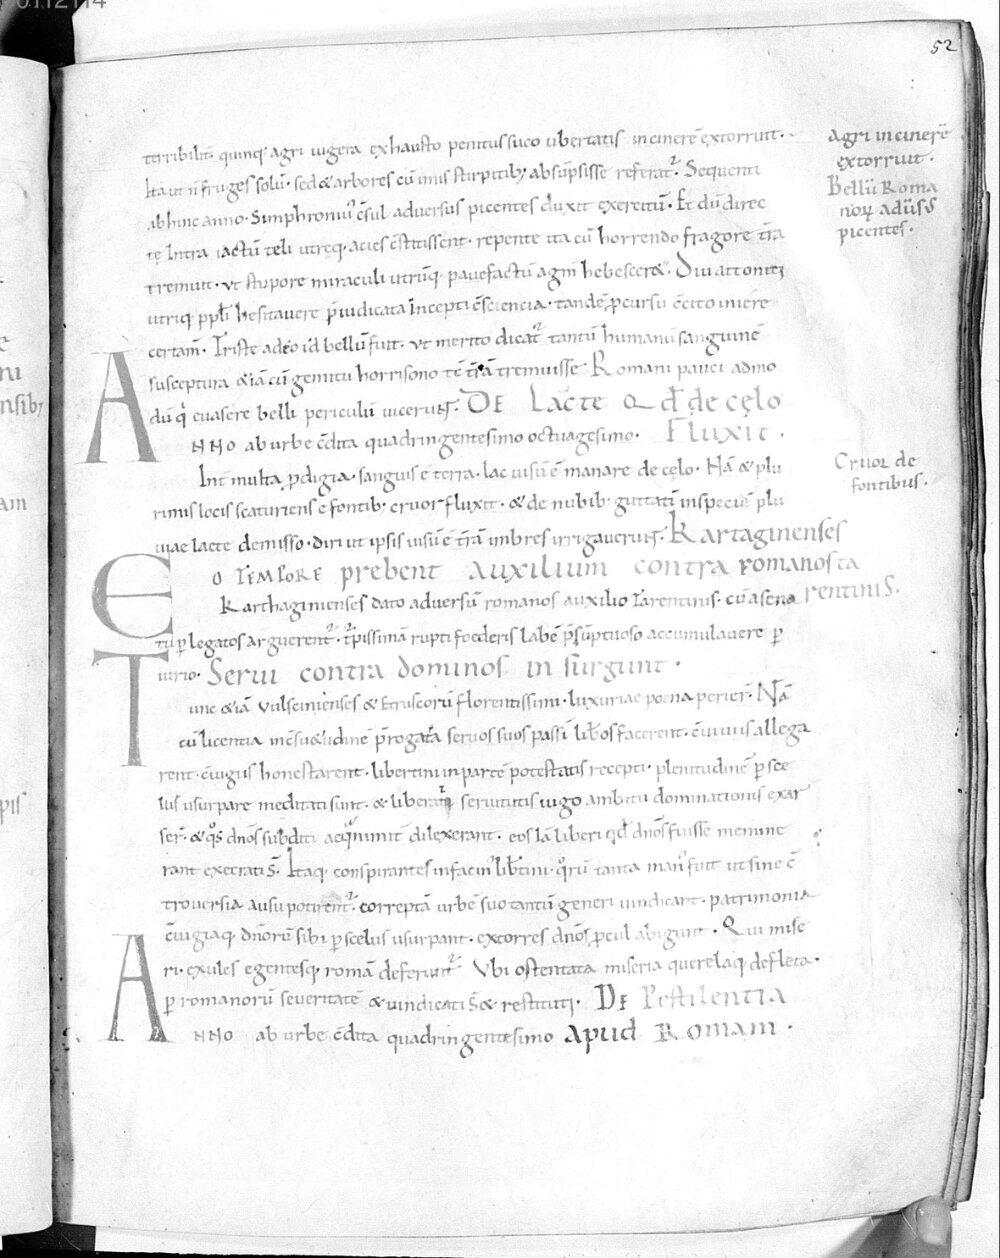 52
terribilit̄ quinq; agri iugera exhausto penitus suco ubertatis in cinerē extorruit.
Ita ut n̄ fruges solū · sed & arbores cū imis stirpitib; absūpsisse referat᷑. Sequenti
abhinc anno · Simphroniuſ c̄sul adversus picentes duxit exercitū. Et dū direc
tę intra iactū teli utręq; acies c̄stitissent · repente ita cū horrendo fragore t̄ra
tremuit · ut stupore miraculi utrūq; pavefactū agm̄ hebesceret. Diu attoniti
utriq; ppl̄i hesitavere p̄iudicata incepti c̄sciencia · tandē p̄cursu c̄cito iniere
certam̄. Triste adeo id bellū fuit · ut merito dicat᷑ tantū humanū sanguinē
susceptura & iā cū gemitu horrisono tē t̄ra tremuisse. Romani pauci admo
dū q̇ evasere belli periculū vicerunt. DE Lacte Qd̄ de cęlo
ANNO ab urbe c̄dita quadringentesimo octuagesimo. Fluxit.
Int̄ multa p̄digia · sanguis e terra · lac visū ē manare de cęlo. Nā & plu
rimis locis scaturiens e fontib; cruor fluxit · & de nubib; guttatī in speciē plu
viae lacte demisso · diri ut ipsis visū ē t̄rā imbres irrigaverunt. Kartaginenses
EO TEMPORE prebent auxilium contra romanos ta
Karthaginienses dato adversū romanos auxilio Tarentinis · cū a sena rentinis.
tu p̱ legatos arguerent᷑ · t̄pissimā rupti foederis labē p̄sūptuoso accumulavere p̱
iurio. Servi contra dominos in surgunt.
Tunc & iā Vulseinienses & Etruscorū florentissimi · luxuriae poena perier̄. Nā
cū licentia in c̄suetudinē p̄rogata servos suos passī lib̄os facerent · c̄viviis allega
rent · c̄iugiis honestarent · libertini in partē potestatis recepti · plenitudinē p̱ sce
lus usurpare meditati sunt · & liberati servitutis iugo ambitu dominationis exar
ser̄ · & qͦs dn̄os subditi aeqͣnimit̄ dilexerant · eos iā liberi qd̄ dn̄os fuisse memine
rant execrati s̄. Itaq; conspirantes in facin᷒ lib̄tini · qͦrū tanta man᷒ fuit ut sine c̄
troversia ausu potirent᷑ · correptā urbē suo tantū generi vindicant · patrimonia
c̄iugiaq; dn̄orū sibi p̱ scelus usurpant · extorres dn̄os p̱cul abigunt. Qui mise
ri · exules egentesq; romā deferunt᷑. Ubi ostentata miseria querelaq; defleta ·
p̱ romanorū severitatē & vindicati s̄ & restituti. DE Pestilentia
ANNO ab urbe c̄dita quadringentesimo Apud Romam.
Agri in cinerē
extorruit.
Bellū Roma
noꝝ adūsꝰ
picentes.
Cruor de
fontibus.